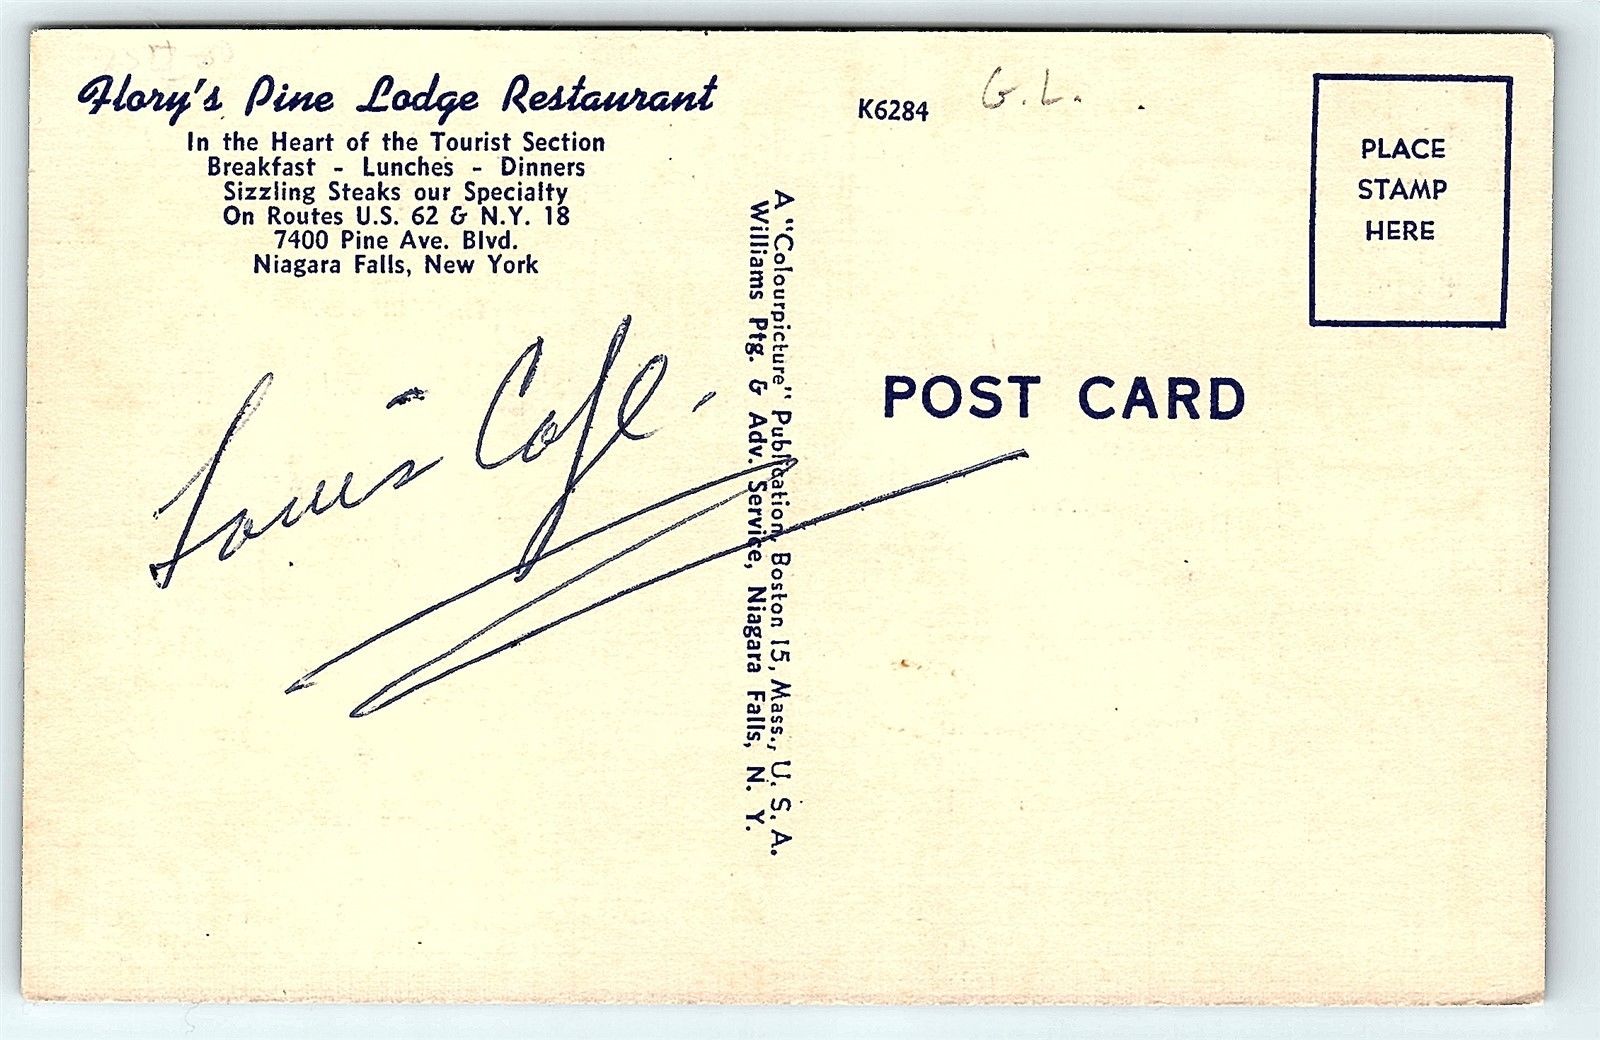 Flory's Pine Lodge Restaurant
In the Heart of the Tourist Section
Breakfast - Lunches - Dinners
Sizzling Steaks our Specialty
On Routes U.S. 62 & N.Y. 18
7400 Pine Ave. Blvd.
Niagara Falls, New York
Louis Cafe.
A "Colourpicture" Publication, Boston 15, Mass., U. S. A.
Williams Ptg. & Adv. Service, Niagara Falls, N. Y.
K6284
G.L.
PLACE
STAMP
HERE
POST CARD